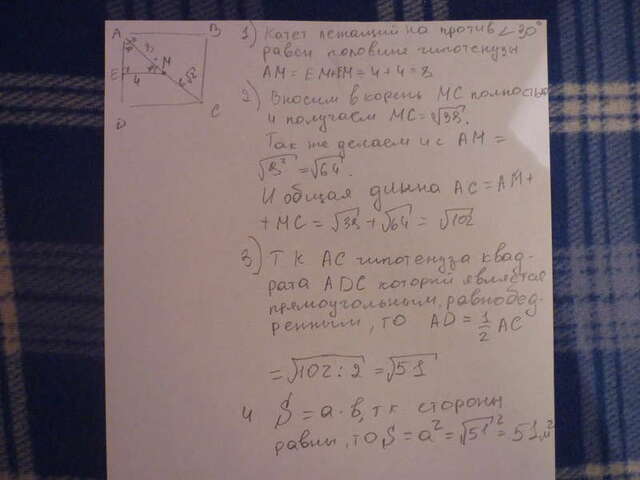 A B
E 4 M
D C
1) Катет лежащий на против ∠30°
равен половине гипотенузы
AM = EM+EM = 4 + 4 = 8
2) Вносим в корень MC полностью
и получаем MC = √38.
Так же делаем и с AM =
√8² = √64.
И общая длинна AC = AM +
+ MC = √38 + √64 = √102
3) Т К AC гипотенуза квад-
рата ADC который является
прямоугольным, равнобед-
ренным, то AD = 1/2 AC
= √102 : 2 = √51
4 S = a · b, т к стороны
равны, то S = a² = √51² = 51м²